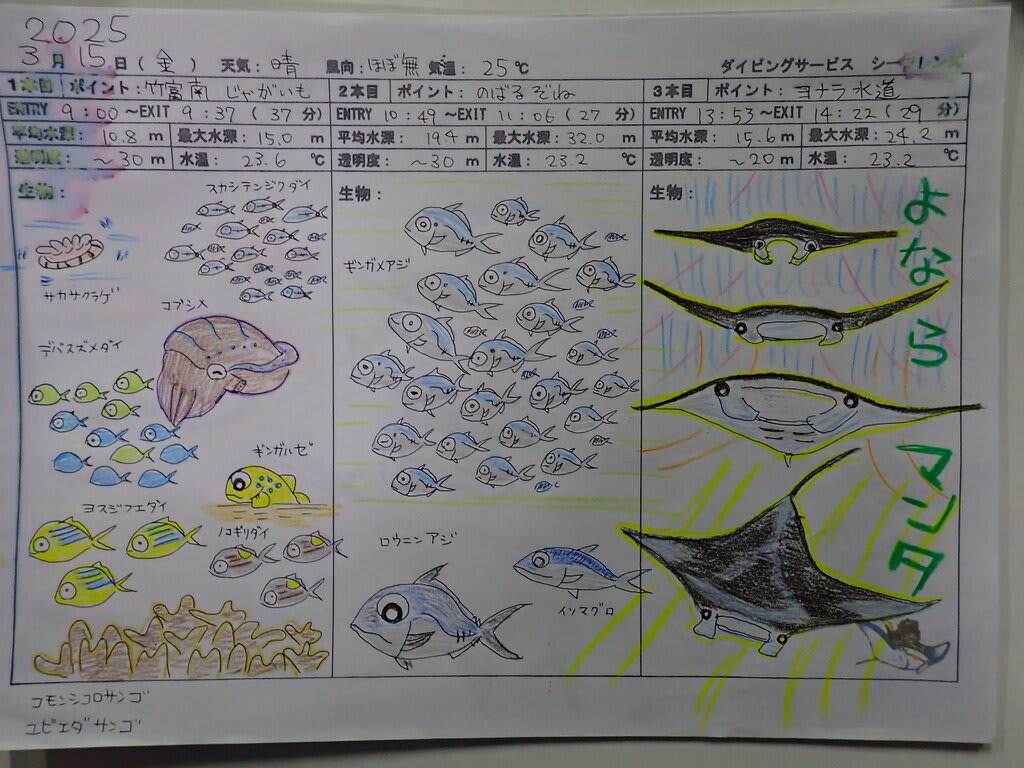 2025
3月 15日(金) 天気:晴 風向:ほぼ無 気温:25℃ ダイビングサービス シーフレンズ
1本目 ポイント:竹富南 じゃがいも
ENTRY 9:00~EXIT 9:37(37分)
平均水深:10.8m 最大水深:15.0m
透明度:~30m 水温:23.6℃
生物:
スカシテンジクダイ
サカサクラゲ
コブシメ
デバスズメダイ
ギンガハゼ
ヨスジフエダイ
ノコギリダイ
コモンシコロサンゴ
ユビエダサンゴ
2本目 ポイント:のばるぞね
ENTRY 10:49~EXIT 11:06(27分)
平均水深:19.4m 最大水深:32.0m
透明度:~30m 水温:23.2℃
生物:
ギンガメアジ
ロウニンアジ
イソマグロ
3本目 ポイント:ヨナラ水道
ENTRY 13:53~EXIT 14:22(29分)
平均水深:15.6m 最大水深:24.2m
透明度:~20m 水温:23.2℃
生物:
よなら
マンタ